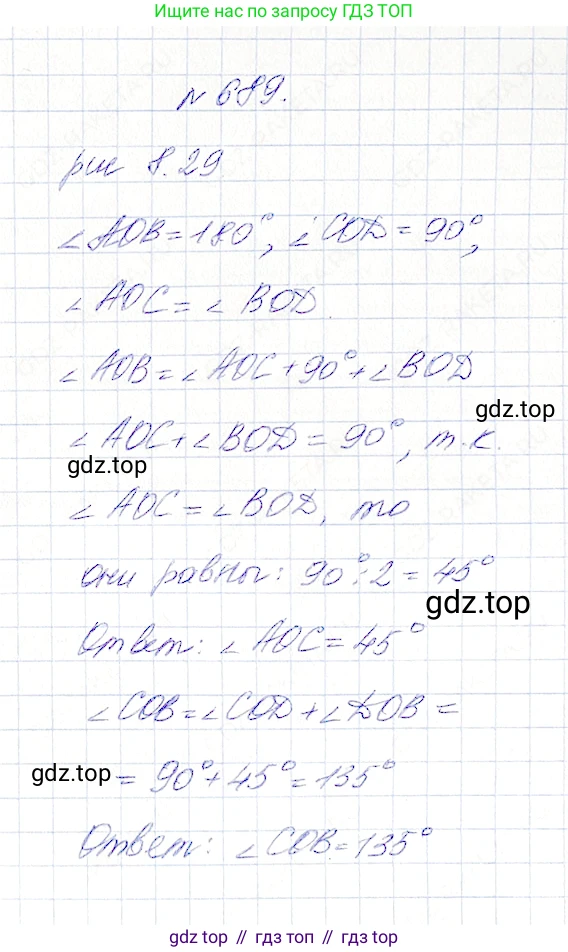 Ищите нас по запросу ГДЗ ТОП
№ 689.
рис 8.29
∠AOB = 180°, ∠COD = 90°,
∠AOC = ∠BOD.
∠AOB = ∠AOC + 90° + ∠BOD
gdz.top
∠AOC + ∠BOD = 90°, т.к.
gdz.top
∠AOC = ∠BOD, то
они равны: 90° : 2 = 45°
gdz.top
Ответ: ∠AOC = 45°
∠COB = ∠COD + ∠DOB =
gdz.top
= 90° + 45° = 135°
Ответ: ∠COB = 135°
gdz top // гдз топ // gdz.top